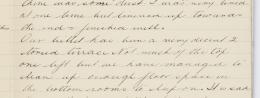 There was some dust & I was very tired
at one time but limbered up towards
the end & finished well.
Our billet has been a very decent 2
storied terrace. Not much of the top
one left but we have managed to
clean up enough floor space in
the bottom rooms to sleep on. It is sad